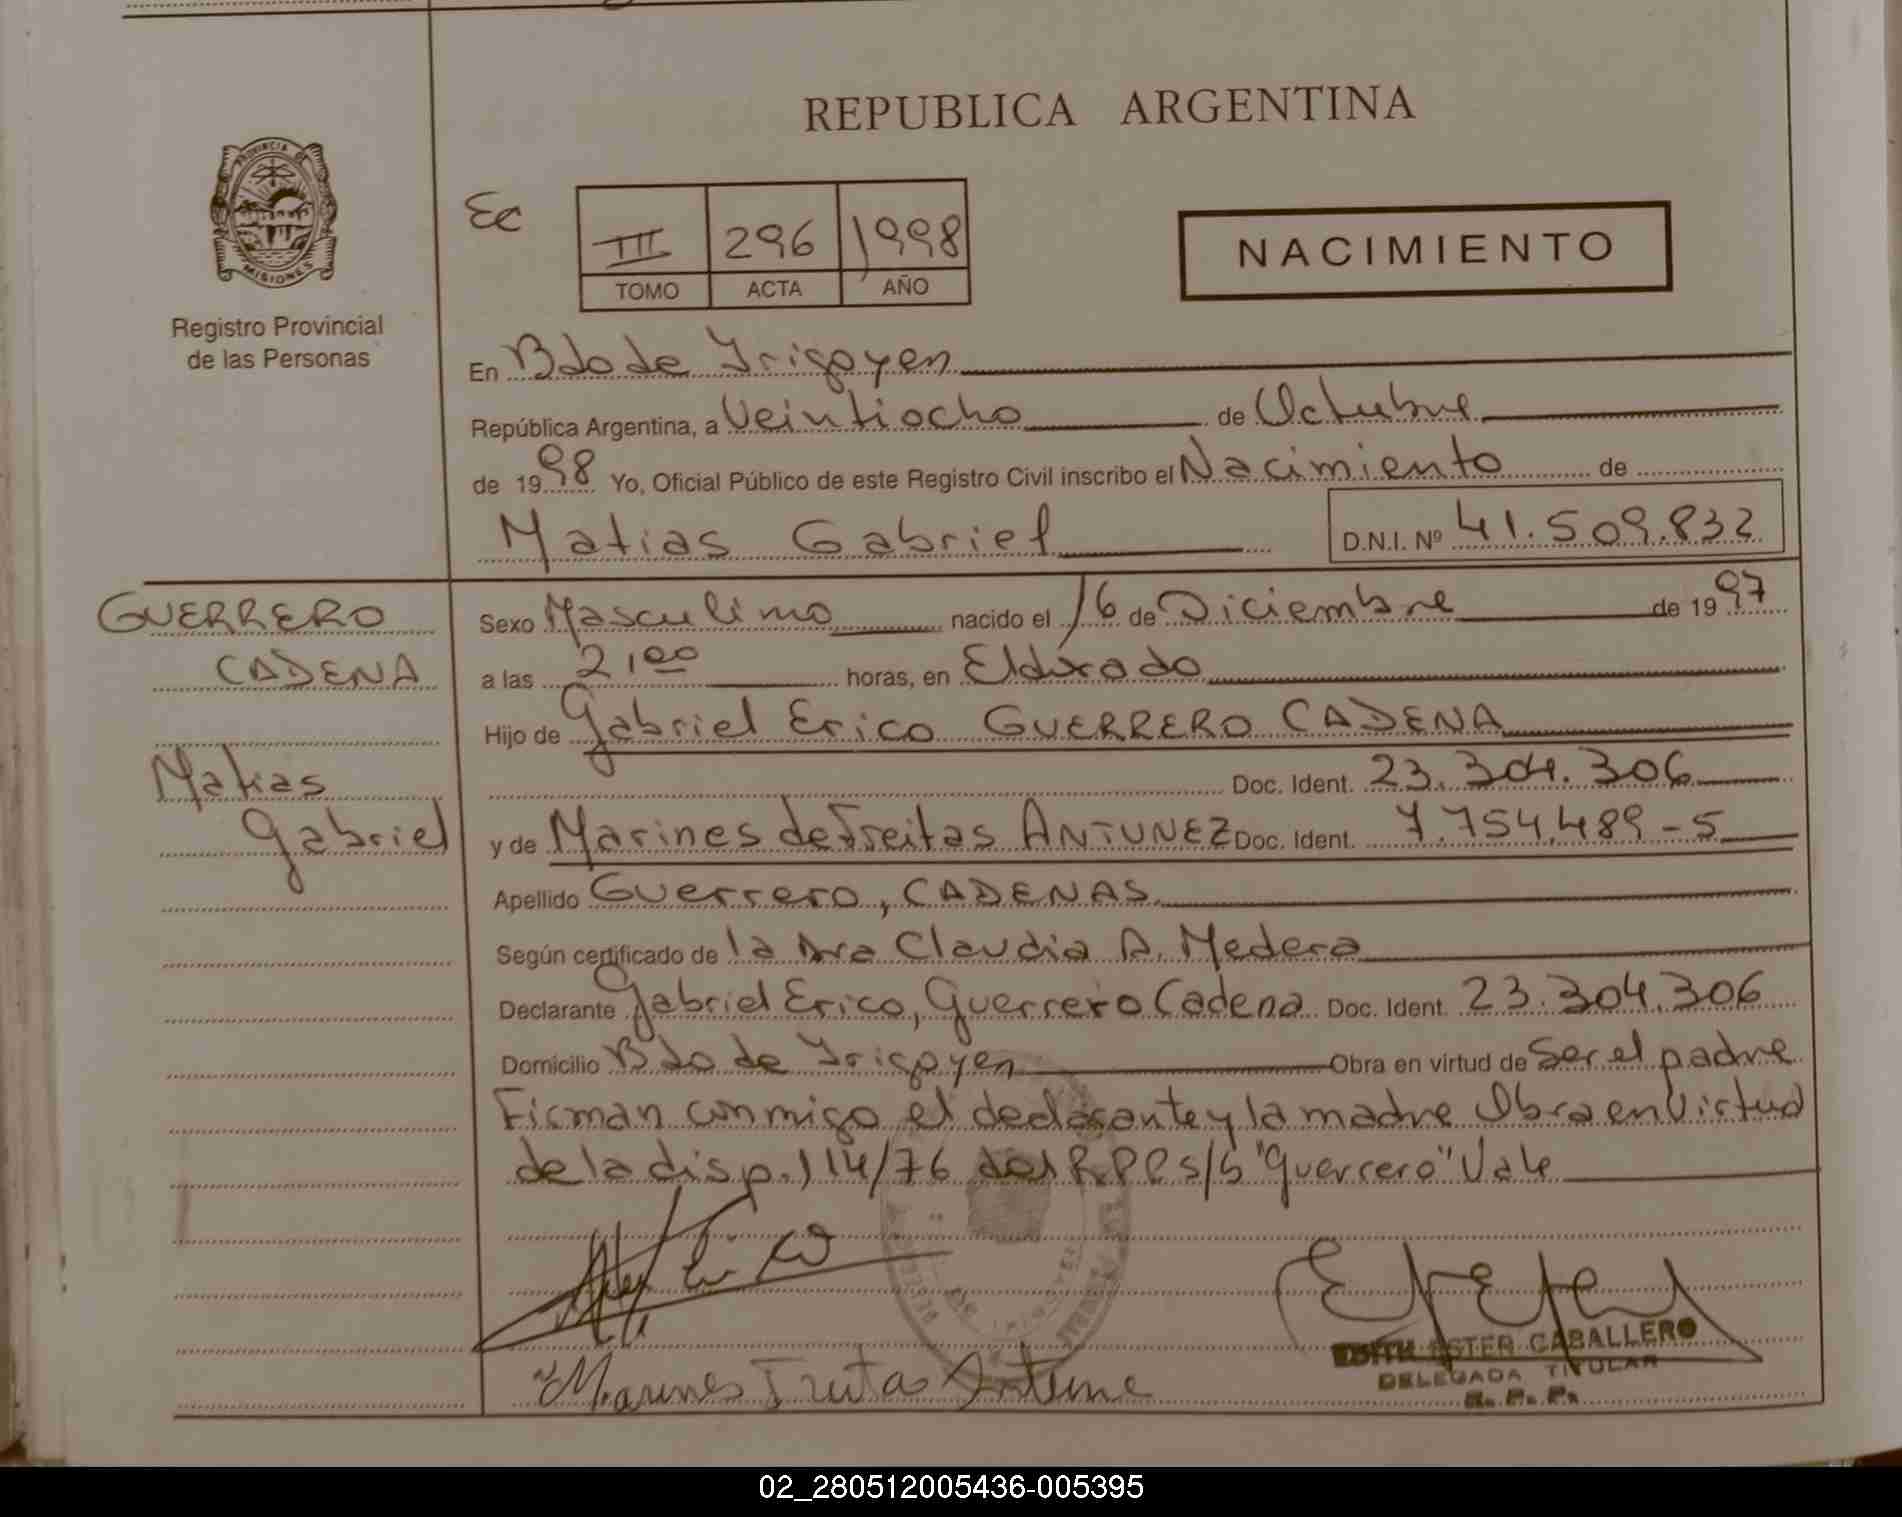 REPUBLICA ARGENTINA
PROVINCIA DE
MISIONES
Registro Provincial
de las Personas
Ec
III 296 1998
TOMO ACTA AÑO
NACIMIENTO
En Bdo de Irigoyen
República Argentina, a Veintiocho de Octubre
de 1998 Yo, Oficial Público de este Registro Civil inscribo el Nacimiento de
Matias Gabriel D.N.I. Nº 41.509.832
GUERRERO
CADENA
Matias
Gabriel
Sexo Masculino nacido el 16 de Diciembre de 1997
a las 21,00 horas, en Eldorado
Hijo de Gabriel Erico GUERRERO CADENA
Doc. Ident. 23.304.306
y de Marines de Freitas ANTUNEZ Doc. Ident. 7.754.489-5
Apellido Guerrero, CADENAS
Según certificado de la Dra Claudia A. Medera
Declarante Gabriel Erico, Guerrero Cadena Doc. Ident. 23.304.306
Domicilio Bdo de Irigoyen Obra en virtud de Ser el padre
Firman conmigo el declarante y la madre Obra en Virtud
de la disp. 114/76 del R.P.P. s/b "Guerrero" Vale
Marines Freitas Antune
EDITH ESTER CABALLERO
DELEGADA TITULAR
R. P. P.
02_280512005436-005395